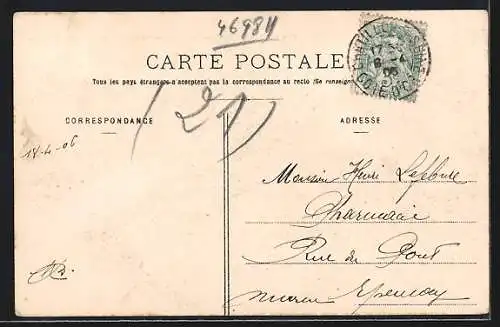 46984
CARTE POSTALE
Tous les pays étrangers n'acceptent pas la correspondance au recto (Se renseigner
(21)
CORRESPONDANCE
ADRESSE
14-4-06
Monsieur Henri Lefebvre
Pharmacie
Rue du Pont
Epernay